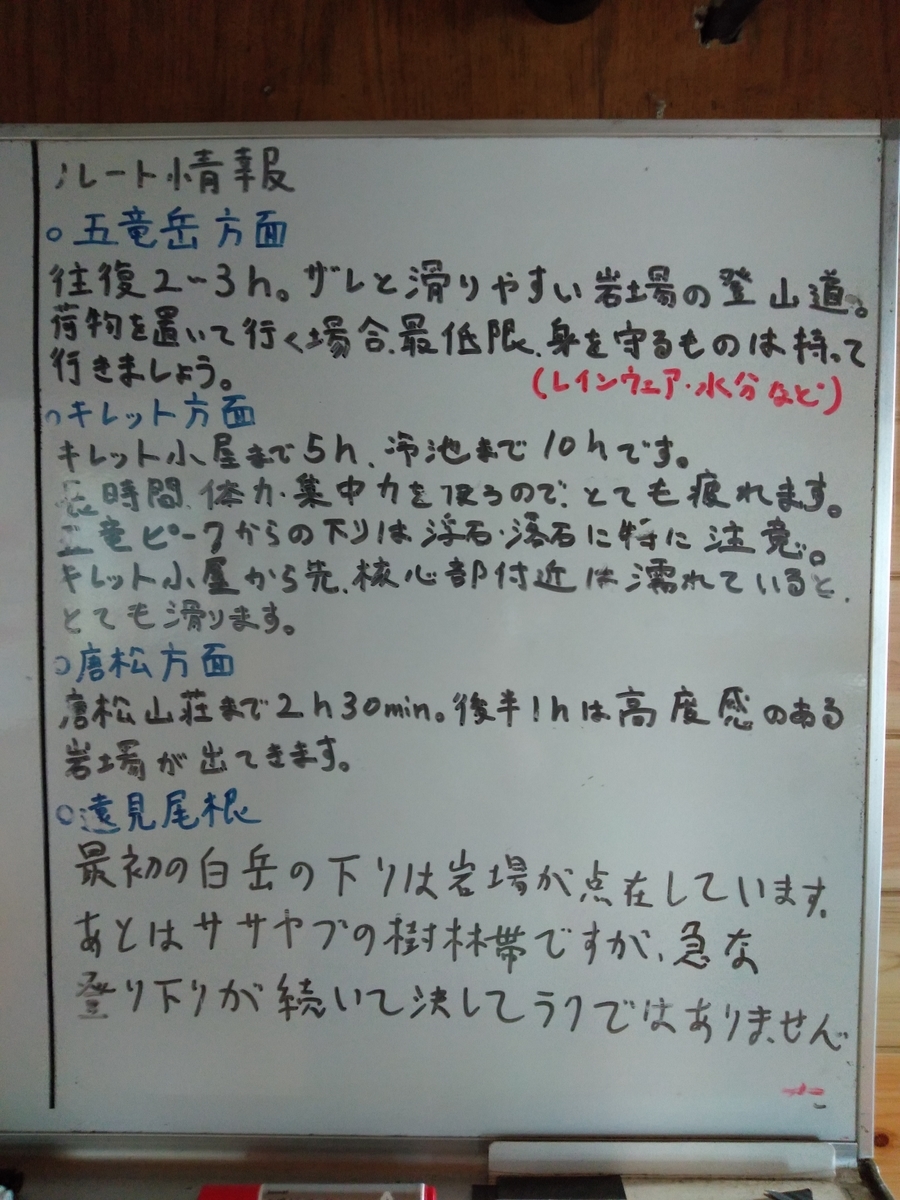 ルート情報
○五竜岳方面
往復2~3h。ザレと滑りやすい岩場の登山道。
荷物を置いて行く場合、最低限、身を守るものは持って
行きましょう。
(レインウェア・水分など)
○キレット方面
キレット小屋まで5h、冷池まで10hです。
長時間、体力・集中力を使うので、とても疲れます。
五竜ピークからの下りは浮石・落石に特に注意。
キレット小屋から先、核心部付近は濡れていると、
とても滑ります。
○唐松方面
唐松山荘まで2h30min。後半1hは高度感のある
岩場が出てきます。
○遠見尾根
最初の白岳の下りは岩場が点在しています。
あとはササヤブの樹林帯ですが、急な
登り下りが続いて決してラクではありません